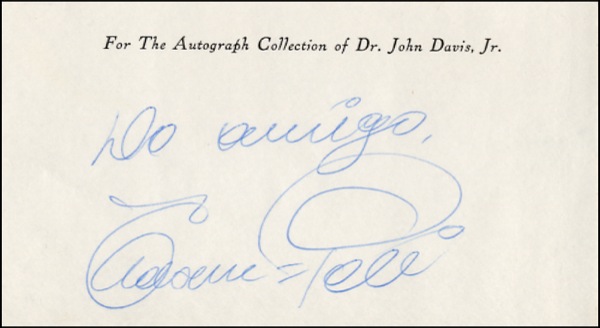 For The Autograph Collection of Dr. John Davis, Jr.
Do amigo,
Edson=Pelé